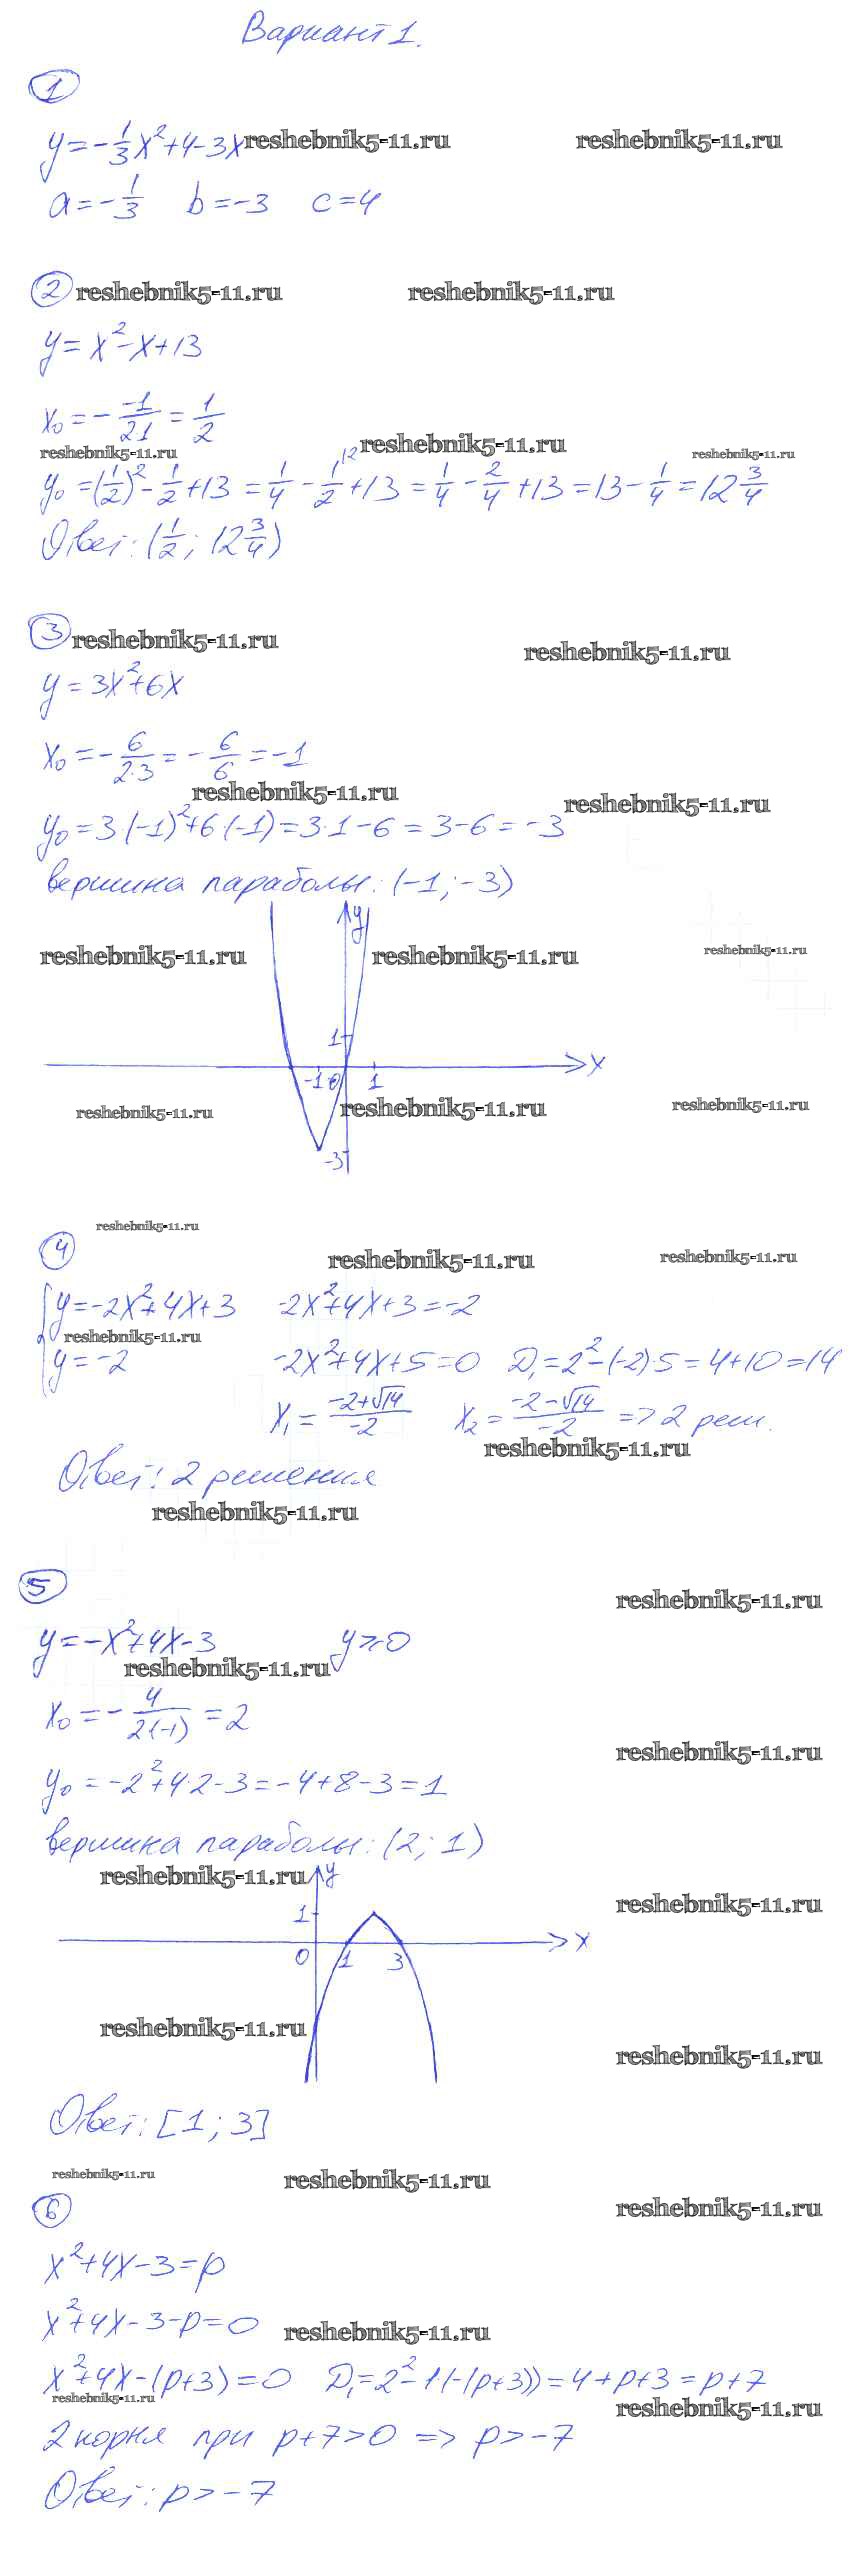 Вариант 1.
1
y = -1/3 x² + 4 - 3x reshebnik5-11.ru reshebnik5-11.ru
a = -1/3 b = -3 c = 4
2 reshebnik5-11.ru reshebnik5-11.ru
y = x² - x + 13
x₀ = - -1/2·1 = 1/2
reshebnik5-11.ru reshebnik5-11.ru reshebnik5-11.ru
y₀ = (1/2)² - 1/2 + 13 = 1/4 - 1/2 \2 + 13 = 1/4 - 2/4 + 13 = 13 - 1/4 = 12 3/4
Ответ: (1/2; 12 3/4)
3 reshebnik5-11.ru reshebnik5-11.ru
y = 3x² + 6x
x₀ = - 6/2·3 = - 6/6 = -1
reshebnik5-11.ru reshebnik5-11.ru
y₀ = 3·(-1)² + 6·(-1) = 3·1 - 6 = 3 - 6 = -3
вершина параболы: (-1; -3)
y
reshebnik5-11.ru reshebnik5-11.ru reshebnik5-11.ru
1
x
-1 0 1
reshebnik5-11.ru reshebnik5-11.ru reshebnik5-11.ru
-3
reshebnik5-11.ru
4 reshebnik5-11.ru reshebnik5-11.ru
{ y = -2x² + 4x + 3 -2x² + 4x + 3 = -2
reshebnik5-11.ru
y = -2 -2x² + 4x + 5 = 0 D₁ = 2² - (-2)·5 = 4 + 10 = 14
x₁ = -2+√14/-2 x₂ = -2-√14/-2 => 2 реш.
reshebnik5-11.ru
Ответ: 2 решения
reshebnik5-11.ru
5 reshebnik5-11.ru
y = -x² + 4x - 3 y ≥ 0
reshebnik5-11.ru
x₀ = - 4/2·(-1) = 2
reshebnik5-11.ru
y₀ = -2² + 4·2 - 3 = -4 + 8 - 3 = 1
вершина параболы: (2; 1)
reshebnik5-11.ru y
1 reshebnik5-11.ru
x
0 1 3
reshebnik5-11.ru
reshebnik5-11.ru
Ответ: [1; 3]
reshebnik5-11.ru reshebnik5-11.ru
6 reshebnik5-11.ru
x² + 4x - 3 = p
x² + 4x - 3 - p = 0 reshebnik5-11.ru
x² + 4x - (p+3) = 0 D₁ = 2² - 1·(-(p+3)) = 4 + p + 3 = p + 7
reshebnik5-11.ru reshebnik5-11.ru
2 корня при p + 7 > 0 => p > -7
Ответ: p > -7